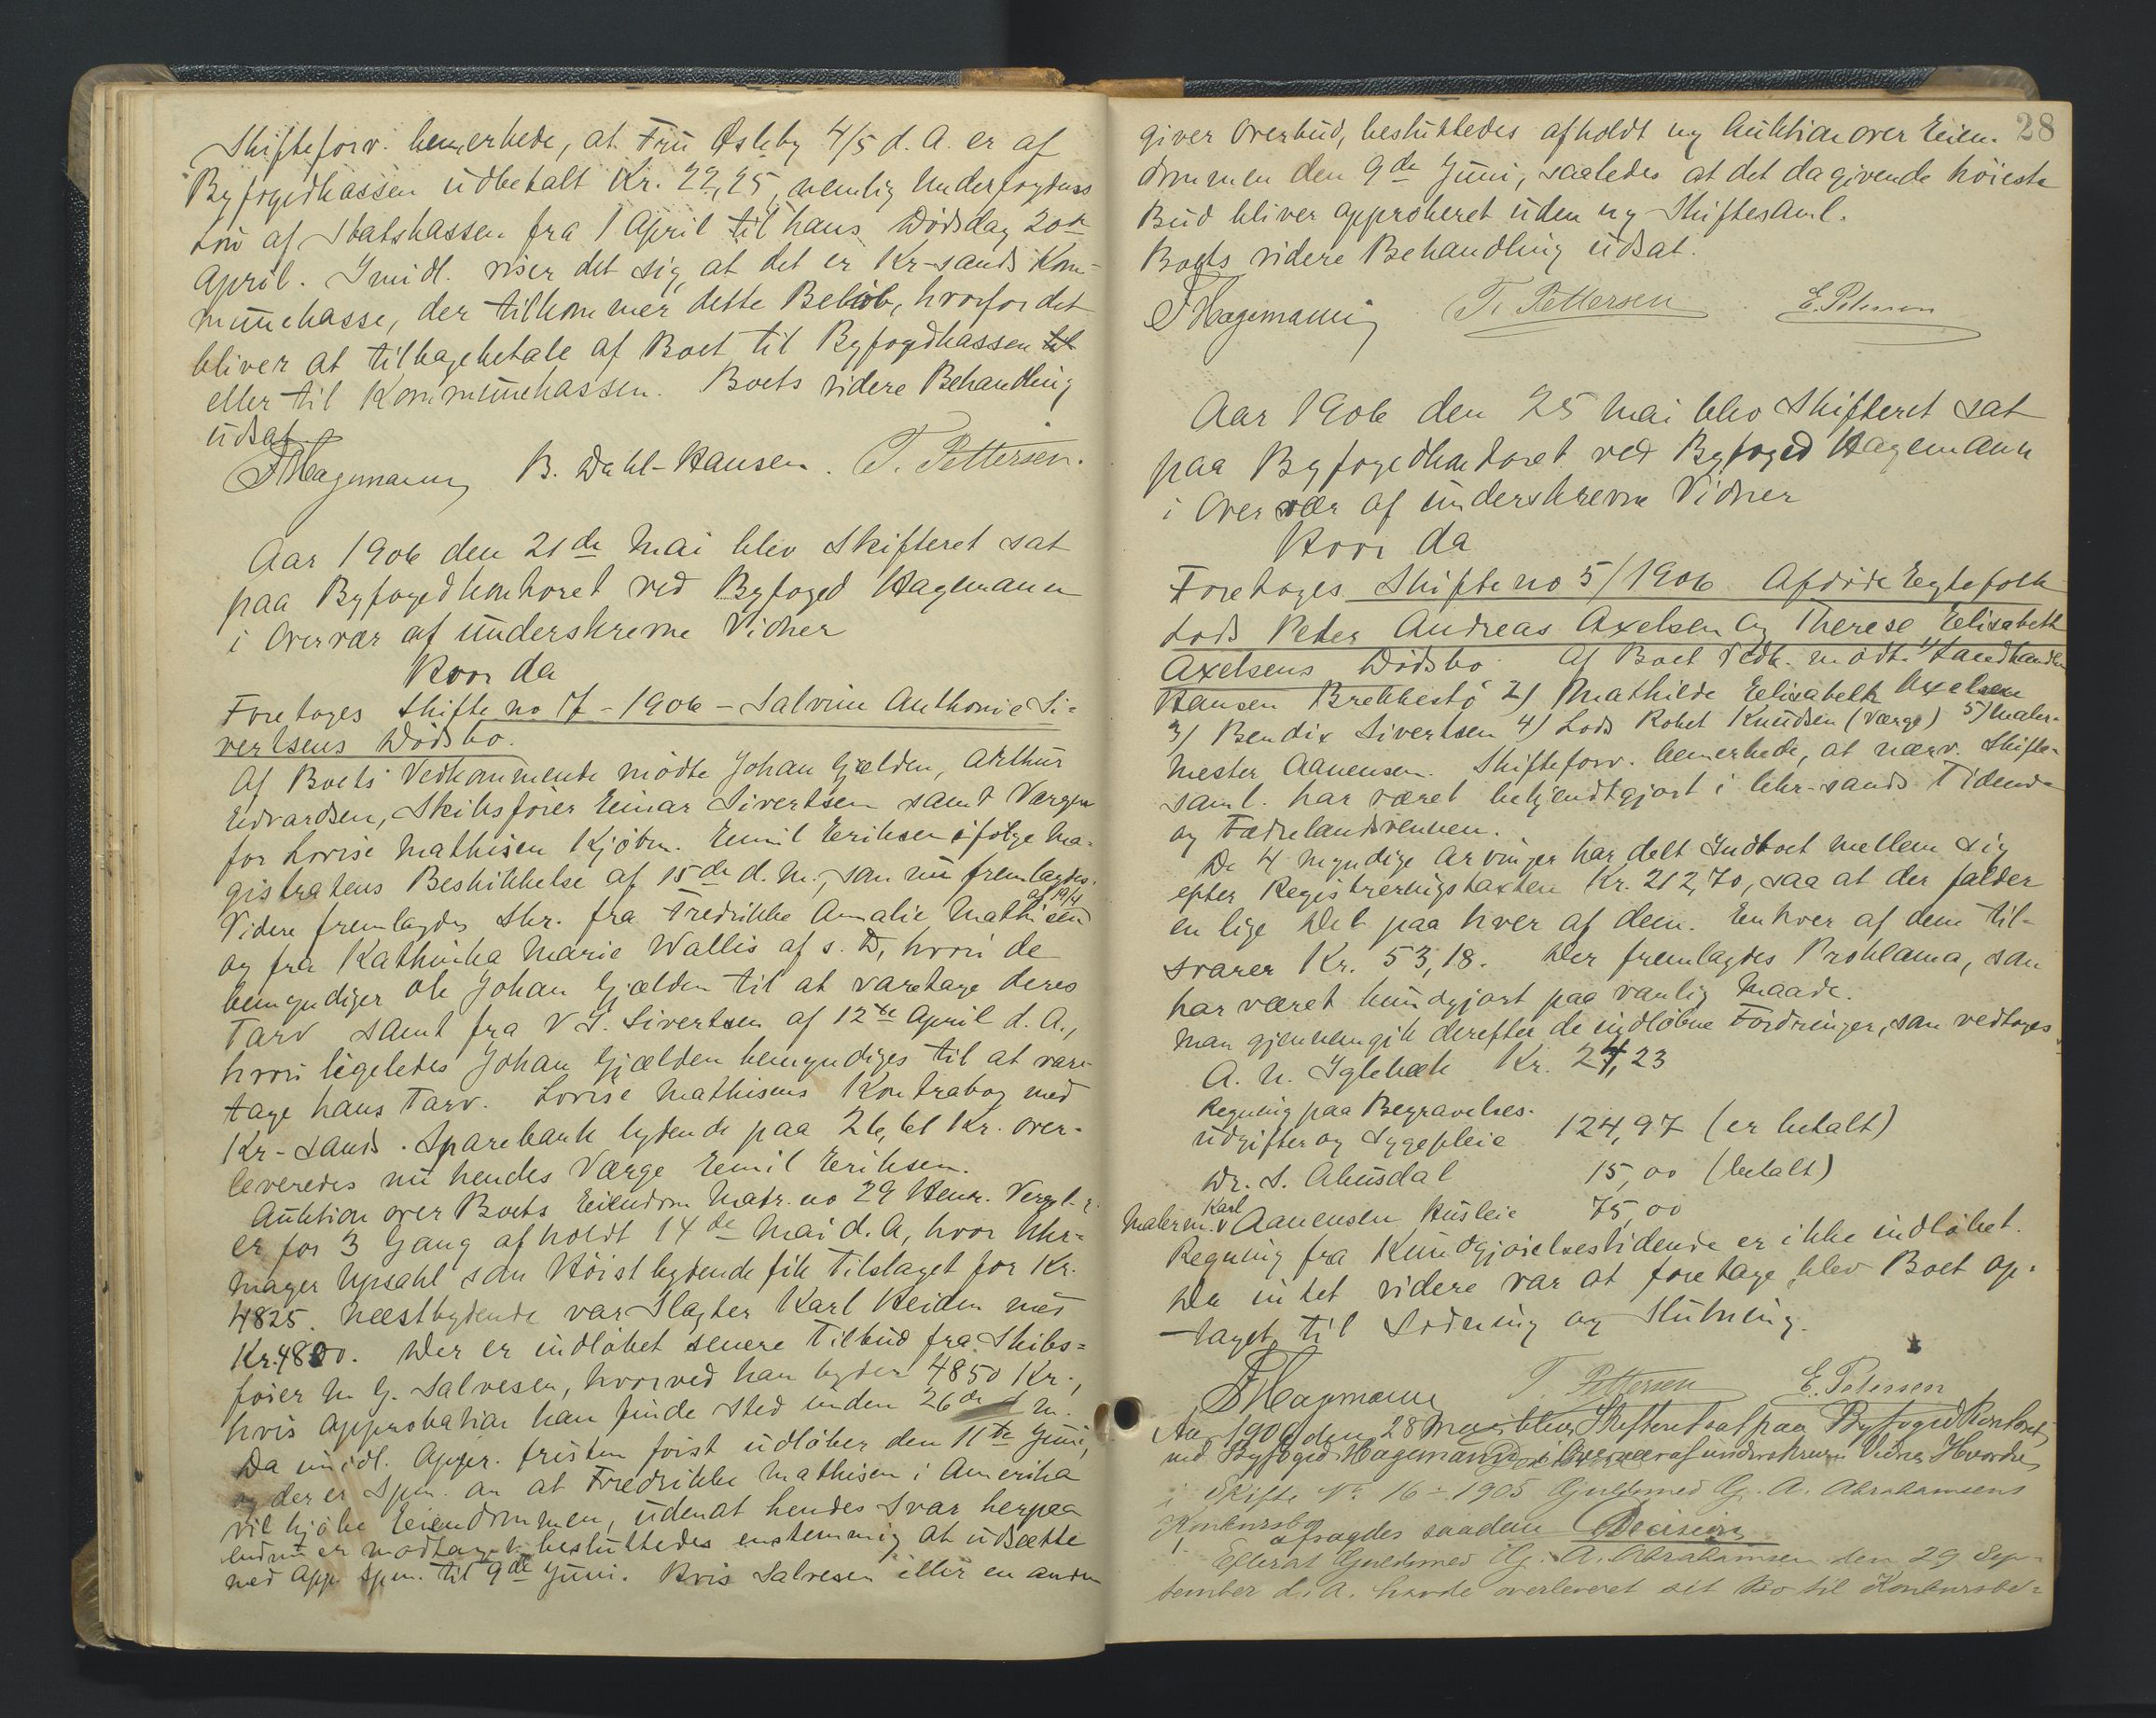 Skifteforv. bemerkede, at Fru Øsleby 4/5 d. A. er af
Byfogedkassen udbetalt Kr. 22,25, nemlig Underfogdens
Løn af Statskassen fra 1 April til hans Dødsdag 20de
April. Imidl. viser det sig, at det er Kr-sands Kom-
munekasse, der tilkommer dette Beløb, hvorfor det
bliver at tilbagebetale af Boet til Byfogdkassen til
eller til Kommunekassen. Boets videre Behandling
udsat.
FHagemann B. Dahl-Hansen. T. Pettersen.
Aar 1906 den 21de Mai blev Skifteret sat
paa Byfogedkontoret ved Byfoged Hagemann
i Overvær af underskrevne Vidner
Hvor da
Foretoges Skifte no 7 - 1906 - Salvine Anthonie Si-
vertsens Dødsbo.
Af Boets Vedkommende mødte Johan Gjælden, Arthur
Edvardsen, Skibsfører Einar Sivertsen samt Værgen
for Lovise Mathisen Kjøbm. Emil Eriksen ifølge Ma-
gistratens Beskikkelse af 15de d. M., som nu fremlagdes.
Videre fremlagdes Skr. fra Fredrikke Amalie Mathisen af 19/4
og fra Kathinka Marie Wallis af s. D, hvori de
bemyndiger Ole Johan Gjælden til at varetage deres
Tarv samt fra V S. Sivertsen af 12te April d. A.,
hvori ligeledes Johan Gjælden bemyndiges til at vare-
tage hans Tarv. Lovise Mathisens Kontrabog med
Kr-sands. Sparebank lydende paa 26,61 Kr. over-
leveredes nu hendes Værge Emil Eriksen.
Auktion over Boets Eiendom Matr. no 29 Henr. Vergl.
er for 3 Gang afholdt 14de Mai d. A, hvor Uhr-
mager Upsahl som Høistbydende fik Tilslaget for Kr.
4825. Næstbydende var Slagter Karl Heiden med
Kr. 4800. Der er indløbet senere Tilbud fra Skibs-
fører M G. Salvesen, hvorved han byder 4850 Kr.,
hvis Approbation kan finde Sted inden 26de d M.
Da imidl. Appr. fristen først udløber den 11te Juni,
og der er Spm. om at Fredrikke Mathisen i Amerika
vil kjøbe Eiendommen, uden at hendes Svar herpaa
endnu er modtaget besluttedes enstemmig at udsætte
med App. Spm. til 9de Juni. Hvis Salvesen eller en anden
28
giver Overbud, besluttedes afholdt ny Auktion over Eien-
dommen den 9de Juni, saaledes at det da givende høieste
Bud bliver approberet uden ny Skiftesaml.
Boets videre Behandling udsat.
FHagemann T. Pettersen E. Petersen
Aar 1906 den 25 Mai blev Skifteret sat
paa Byfogedkontoret ved Byfoged Hagemann
i Overvær af underskrevne Vidner
Hvor da
Foretoges Skifte no 5/1906 Afdøde Egtefolk
Lods Peder Andreas Axelsen og Therese Elisabeth
Axelsens Dødsbo. Af Boet Vedk. mødte 1/ Landhandler
Hansen Brekkestø 2/ Mathilde Elisabeth Axelsen
3/ Bendix Sivertsen 4/ Lods Robet Knudsen (Værge) 5/ Maler-
mester Aanensen. Skifteforv. bemerkede, at nærv. Skifte-
saml. har været bekjendtgjort i Chr.sands Tidende
og Fædrelandsvennen.
De 4 myndige Arvinger har delt Indboet mellem sig
efter Registreringstaxten Kr. 212,70, saa at der falder
en lige Del paa hver af dem. Enhver af dem til-
svarer Kr. 53,18. Der fremlagdes Proklama, som
har været kundgjort paa vanlig Maade.
Man gjennemgik derefter de indløbne Fordringer, som vedtoges
A. N. Iglebæk Kr. 24,23
Regning paa Begravelses-
udgifter og Sygepleie 124,97 (er betalt)
Dr. S. Abusdal 15,00 (betalt)
Malerm. Karl Aanensen Husleie 75,00
Regning fra Kundgjørelsestidende er ikke indløbet.
Da intet videre var at foretage blev Boet op-
taget til Lodning og Slutning.
FHagemann T. Pettersen E. Petersen
Aar 1906 den 28 Mai blev Skifteret sat paa Byfoged Kontoret
ved Byfoged Hagemann i Overvær af underskrevne Vidner Hvorda
i Skifte No 16 - 1905 Guldsmed G. A. Abrahamsens
Konkursbo
afsagdes saadan Decision
Efterat Guldsmed G. A. Abrahamsen den 29 Sep-
tember d. A. havde overleveret sit Bo til Konkursbe-